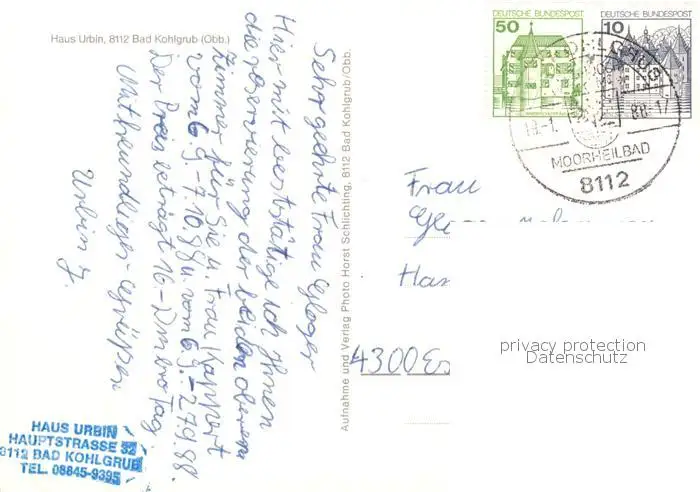 Haus Urbin, 8112 Bad Kohlgrub (Obb.)
Sehr geehrte Frau Gloger
Hier mit bestätige ich Ihnen
die reservierung der beiden oberen
Zimmer für Sie u. Frau Kappert
vom 6.9.-7.10.88 u. vom 6.9.-27.9.88.
Der Preis beträgt 16.- Dm pro Tag.
Mit freundlichen Grüßen
Urbin J.
HAUS URBIN
HAUPTSTRASSE 32
8112 BAD KOHLGRUB
TEL. 08845-9395
Aufnahme und Verlag Photo Horst Schlichting, 8112 Bad Kohlgrub/Obb.
50 DEUTSCHE BUNDESPOST
10 DEUTSCHE BUNDESPOST
88-17
MOORHEILBAD
8112
Frau
4300 Es
privacy protection
Datenschutz